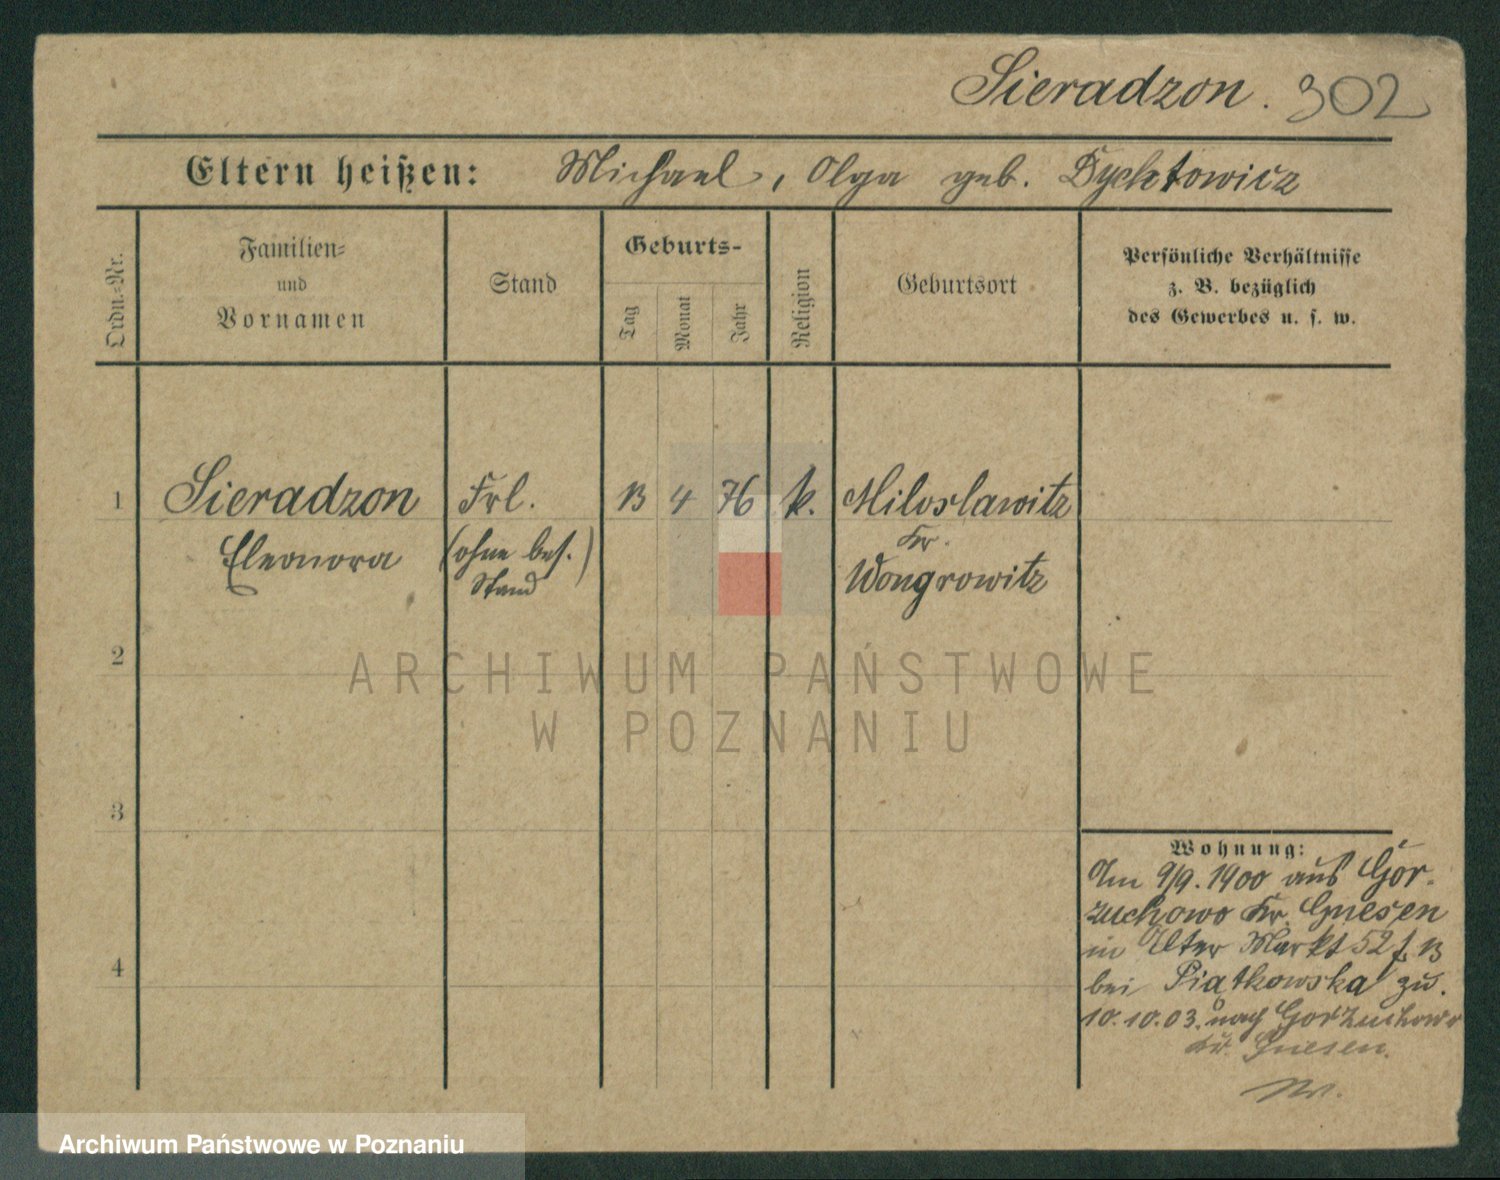 Sieradzon. 302
Eltern heißen: Michael, Olga geb. Dychtowicz
Ordn.-Nr.
Familien-
und
Vornamen
Stand
Geburts-
Tag
Monat
Jahr
Religion
Geburtsort
Persönliche Verhältnisse
z. B. bezüglich
des Gewerbes u. s. w.
1 Sieradzon Frl. 13 4 76 k. Miloslawitz
Kr.
Eleonora (ohne bes.) Wongrowitz
Stand
2
ARCHIWUM PAŃSTWOWE
W POZNANIU
3
4
Wohnung:
Am 9/9. 1900 aus Gor-
zuchowo Kr. Gnesen
in Alter Markt 52 13
bei Piątkowska zu.
10.10.03. nach Gorzuchowo
Kr. Gnesen.
Archiwum Państwowe w Poznaniu